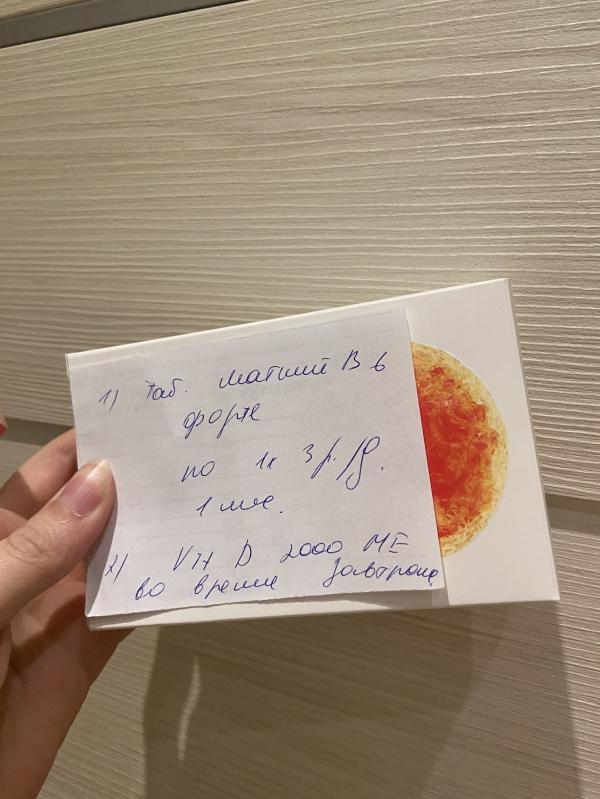 1) Таб. Магний В 6
форте
по 1к 3 р./д.
1 мес.
2) Vit D 2000 МЕ
во время завтрака